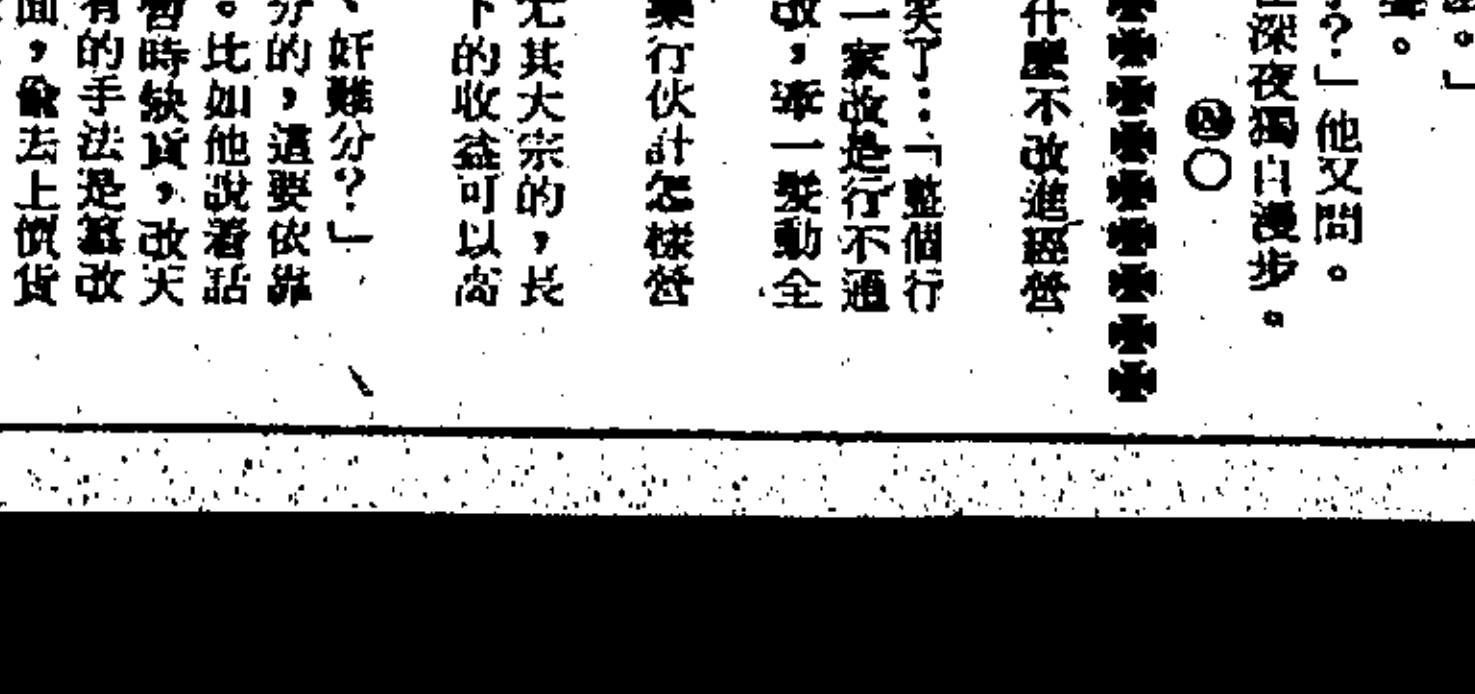 。」
。
？」他又問。
深夜獨自漫步。
○
什麼不改進經營
笑了：「整個行
一家改是行不通
改，牽一髮動全
業行伙計怎樣營
尤其大宗的，長
下的收益可以高
、奸難分？」
分的，這要依靠
。比如他說着話
暫時缺貨，改天
有的手法是篡改
面，偷去上價貨